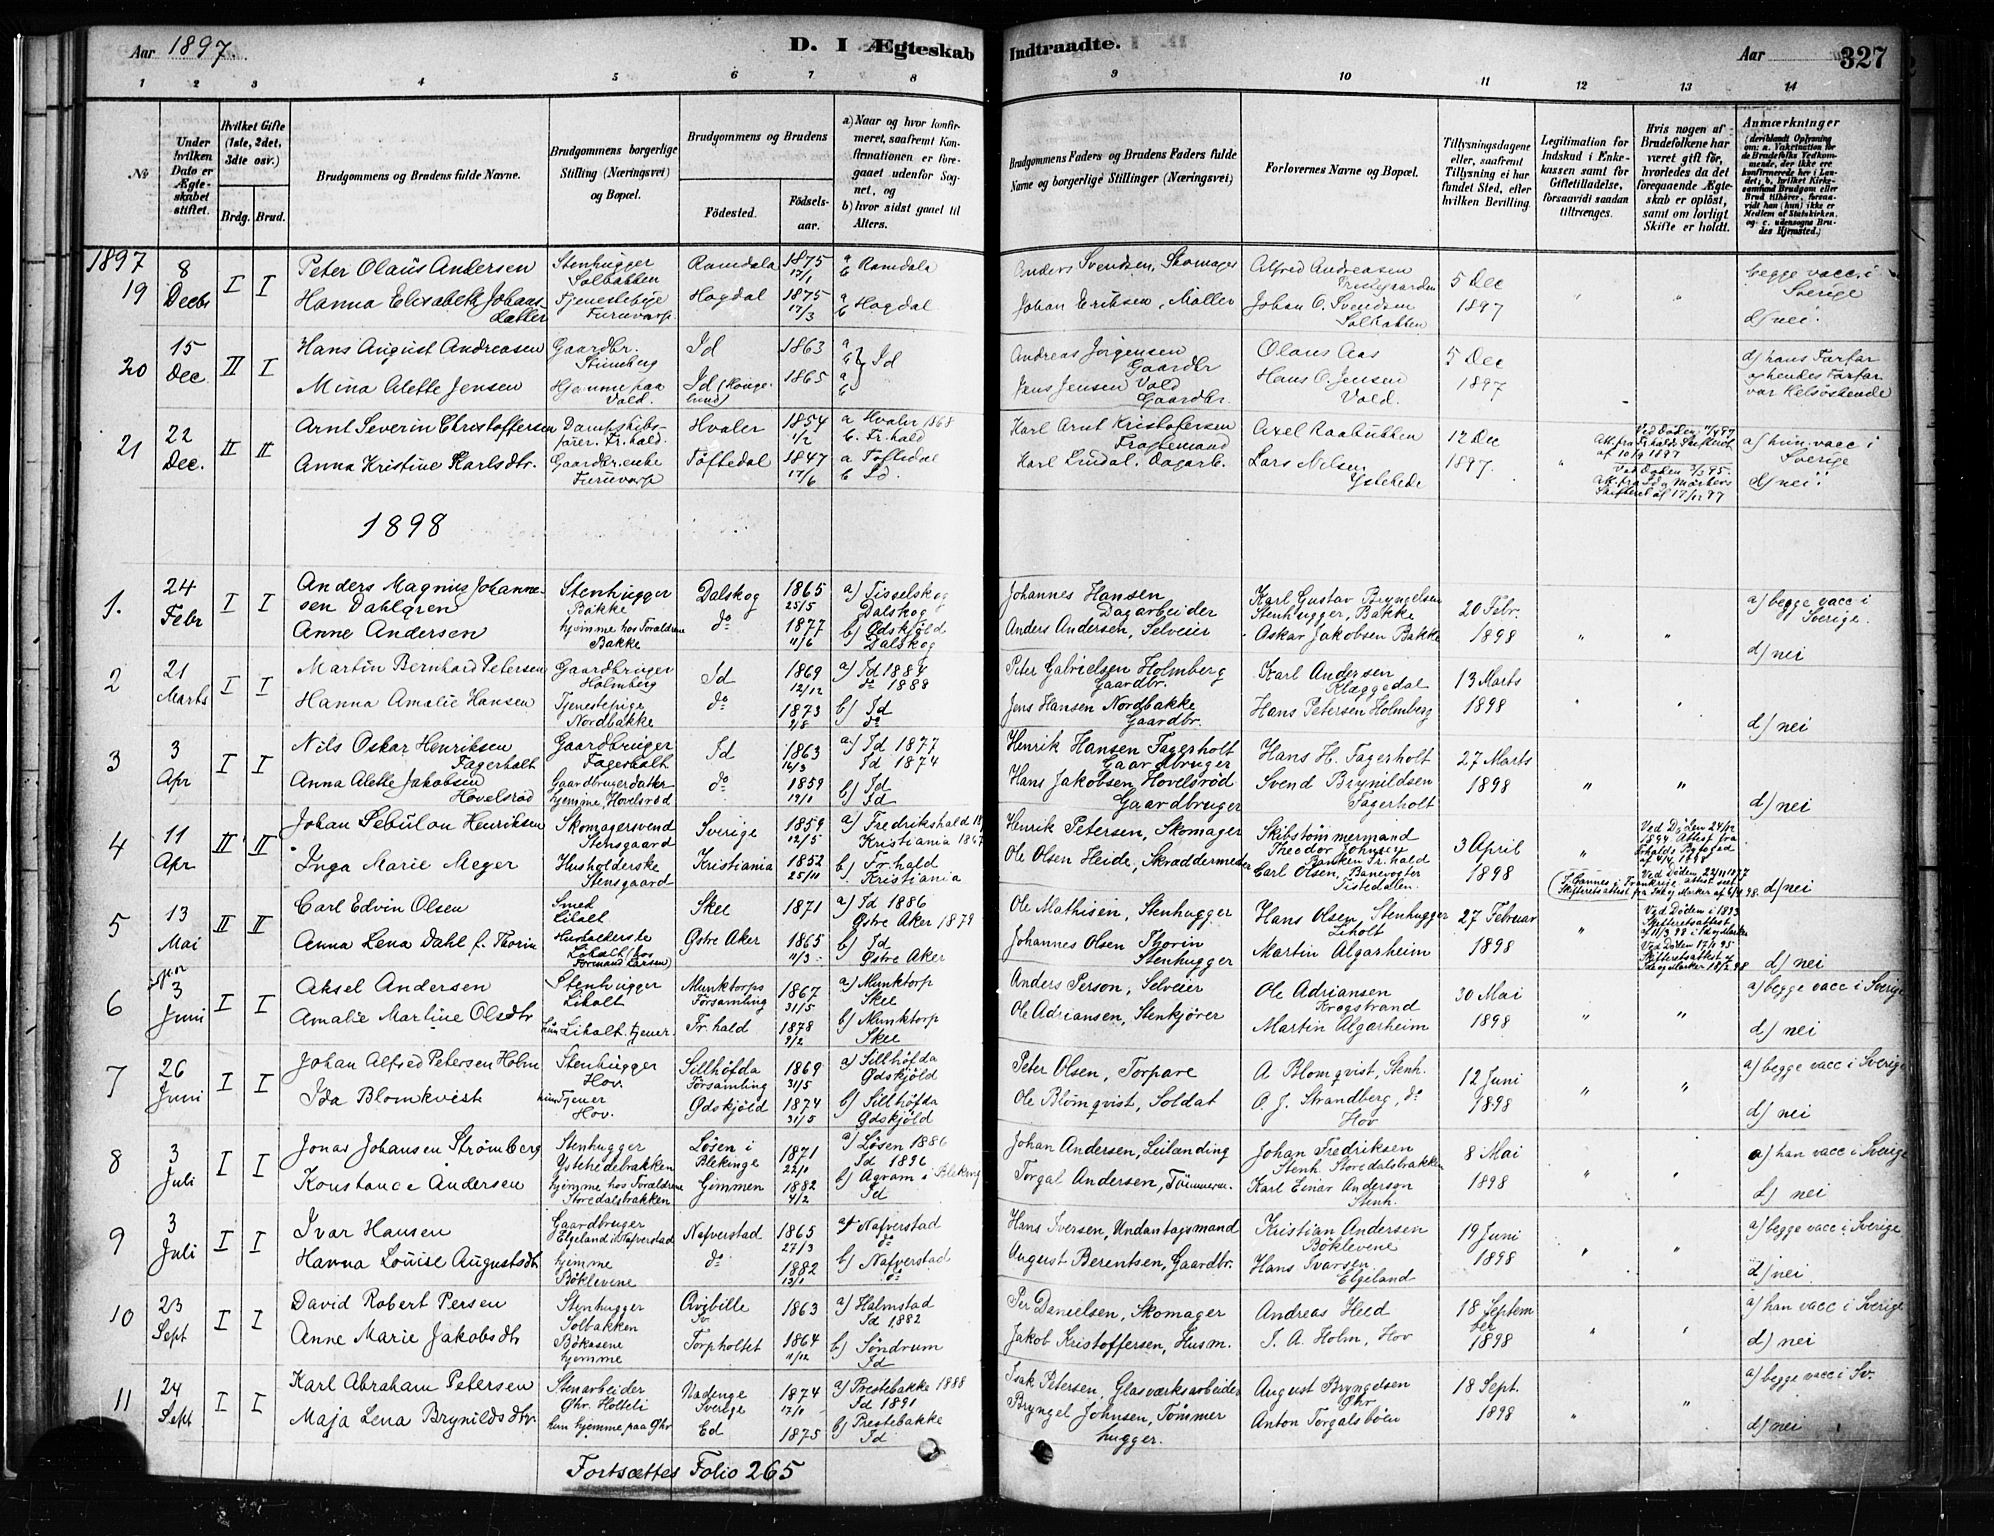 Aar 1897.
D. I Ægteskab
Indtraadte.
Aar
327
1 2 3 4 5 6 7 8 9 10 11 12 13 14
No
Under hvilken Dato er Ægteskabet stiftet.
Hvilket Gifte (1ste, 2det, 3die osv.)
Brdg. Brud.
Brudgommens og Brudens fulde Navne.
Brudgommens borgerlige Stilling (Næringsvei) og Bopæl.
Brudgommens og Brudens
Fødested.
Fødselsaar.
a) Naar og hvor konfirmeret, saafremt Konfirmationen er foregaaet udenfor Sognet, og
b) hvor sidst gaaet til Alters.
Brudgommens Faders og Brudens Faders fulde Navne og borgerlige Stillinger (Næringsvei)
Forlovernes Navne og Bopæl.
Tillysningsdagene eller, saafremt Tillysning ei har fundet Sted, efter hvilken Bevilling
Legitimation for Indskud i Enkekassen samt for Giftetilladelse, forsaavidt saadan tiltrænges.
Hvis nogen af Brudefolkene har været gift før, hvorledes da det foregaaende Ægteskab er opløst, samt om lovligt Skifte er holdt.
Anmærkninger
1897
19 8 Decbr I I Peter Olaus Andersen Stenhugger Solbakken Ramdala 1875 17/1 a b Ramdala Anders Svendsen, Skomager Alfred Andreasen 5 Dec begge vacc. i Sverige
Hanna Elisabeth Johansdatter Furuvarp Hogdal 1875 17/3 a b Hogdal Johan Eriksen, Møller Johan O. Svendsen Solbakken 1897 d/ nei.
20 15 Dec II I Hans August Andreasen Gaardbr. Id 1863 a b Id Andreas Jørgensen Gaardbr Olaus Aas 5 Dec d/ hans Farfar
Mina Alette Jensen Hjemme paa Vold. Id 1865 a b Jens Jensen Vold Gaardbr. Hans O. Jensen Vold. 1897 og hendes Farfar var Helsøskende
21 22 Dec. II II Arnt Severin Christoffersen Dampskibsfører. Fr.hald. Hvaler 1854 1/2 a Hvaler 1868 b. Fr.hald Karl Arnt Kristofersen Axel 12 Dec Ved Døden a/ hun vacc i Sverige
Anna Kristine Karlsdtr. Gaardbr.enke Furuvarp Töftedal 1847 17/6 a Töftedal b Id. Karl Lindal. Dagarb. Lars Nilsen Ystehede 1897. d/ nei
1898
1. 24 Febr I I Anders Magnus Johannesen Dahlgren Stenhugger Bakke Dalskog 1865 25/5 a) Tisselskog Dalskog Johannes Hansen Dagarbeider Karl Gustav Bryngelsen Stenhugger, Bakke 20 Febr. a) begge vacc i Sverige.
Anne Andersen hjemme hos Forældrene Bakke do 1877 11/6 b) Ødskjøld Dalskog Anders Andersen, Selveier Oskar Jakobsen Bakke 1898 " " d) nei
2 21 Marts I I Martin Bernhard Petersen Gaardbruger Holmberg Id 1869 12/12 a) Id 1884 do 1888 Peter Gabrielsen Holmberg Gaardbr. Karl Andersen Klæggedal 13 Marts
Hanna Amalie Hansen Tjenestepige Nordbakke do 1873 b) Id do Jens Hansen Nordbakke Gaardbr. Hans Petersen Holmberg 1898 " " d) nei
3 3 Apr I I Nils Oskar Henriksen Fagerholt Gaardbruger Fagerholt Id 1863 16/3 a) Id 1877 Id 1874 Henrik Hansen Fagerholt Gaardbruger Hans H. Fagerholt 27 Marts
Anna Alette Jakobsen Hovelsrød Gaardbrugerdatter hjemme, Hovelsrød do 1859 19/1 b) Id Id Hans Jakobsen Hovelsrød Gaardbruger Svend Brynildsen Fagerholt 1898 " " d) nei
4 11 Apr II II Johan Sebulon Henriksen Skomagersvend Stensgaard Sverige 1859 12/5 a) Fredrikshald Kristiania Henrik Petersen, Skomager Skibstømmermand Theodor Johnsen Banken Fr.hald 3 April Ved Døden 24/12 1894
Inga Marie Meyer Husholderske Stensgaard Kristiania 1852 25/11 b) Fr.hald Kristiania Ole Olsen Heide, Skræddermester Carl Olsen, Banevogter Tistedalen. 1898 " Ved Døden d) nei
5 13 Mai II II Carl Edvin Olsen Smed Liholt Skee 1871 a) Id 1886 Østre Aker 1879 Ole Mathisen, Stenhugger Hans Olsen, Stenhugger Liholt 27 Februar Ved Døden i 1893 Skifteretsattest
Anna Lena Dahl f. Thorin Husholderske Liholt (hos Formand Larsen) Østre Aker 1865 11/3 b) Id Østre Aker Johannes Olsen Thorin Stenhugger Martin Algarheim 1898 " Ved Døden 17/1 95 d) nei
6 3 Juni I I Aksel Andersen Stenhugger Liholt Munktorps Forsamling 1867 31/5 a) Munktorp Skee Anders Person, Selveier Ole Adriansen Krogstrand 30 Mai a) begge vacc i Sverige
Amalie Martine Olsdtr hun Liholt. tjener. Fr.hald 1878 9/2 b) Munktorp Skee Ole Adriansen, Stenkjører Martin Algarheim 1898 " " d) nei
7 26 Juni I I Johan Alfred Petersen Holm Stenhugger Hov. Sillhöfda Forsamling 1869 31/5 a) Sillhöfda Ødskjöld Peter Olsen, Torpare A Blomqvist, Stenh. 12 Juni a) begge vacc i Sverige
Ida Blomkvist hun Tjener Hov. Ødskjöld 1874 31/5 b) Sillhöfda Ødskjöld Ole Blomqvist, Soldat O. J. Strandberg, do Hov 1898 " " d) nei
8 3 Juli I I Jonas Johansen Strømberg Stenhugger Ystehedebakken Løsen i Blekinge 1871 22/11 a) Løsen 1886 Id 1896 Johan Andersen, Leilænding Johan Fredriksen Stenh. Storedalsbakken 8 Mai a) han vacc i Sverige
Konstance Andersen hjemme hos Forældrene Storedalsbakken Gimmen 1882 4/2 b) Agram i Bleking Id Torgal Andersen, Tømmerm. Karl Einar Anderson Stenh. 1898 " " d) nei
9 3 Juli I I Ivar Hansen Gaardbruger Elgeland i Nafverstad Nafverstad 1865 27/3 a) Nafverstad do Hans Iversen, Undantagsmand Kristian Andersen Böklevene 19 Juni a) begge vacc i Sverige
Hanna Louise Augustsdtr hjemme Böklevene do 1882 13/1 b) Nafverstad do August Berentsen, Gaardbr. Hans Ivarsen Elgeland 1898 " " d) nei
10 23 Sept I I David Robert Persen Stenhugger Solbakken Qvibille Sv. 1863 a) Halmstad Id 1882 Per Danielsen, Skomager Andreas Held 18 September a) han vacc i Sverige
Anne Marie Jakobsdtr Bøkasene hjemme Torpholtet 1864 1/12 b) Søndrum Id Jakob Kristoffersen, Husm. I. A. Holm, Hov 1898 " " d) nei
11 24 Sept I I Karl Abraham Petersen Stenarbeider Øhr. Holteli Uadenge Sverige 1874 17/11 a) Prestebakke 1888 Id 1891 Isak Petersen, Glasværksarbeider August Bryngelsen Øhr 18 Sept. a) begge vacc i Sv.
Maja Lena Brynildsdtr. hun hjemme paa Øhr Ed 1875 b) Prestebakke Id Bryngel Johnsen, Tømmerhugger. Anton Torgalsbøen 1898 " " d) nei
Fortsættes Folio 265